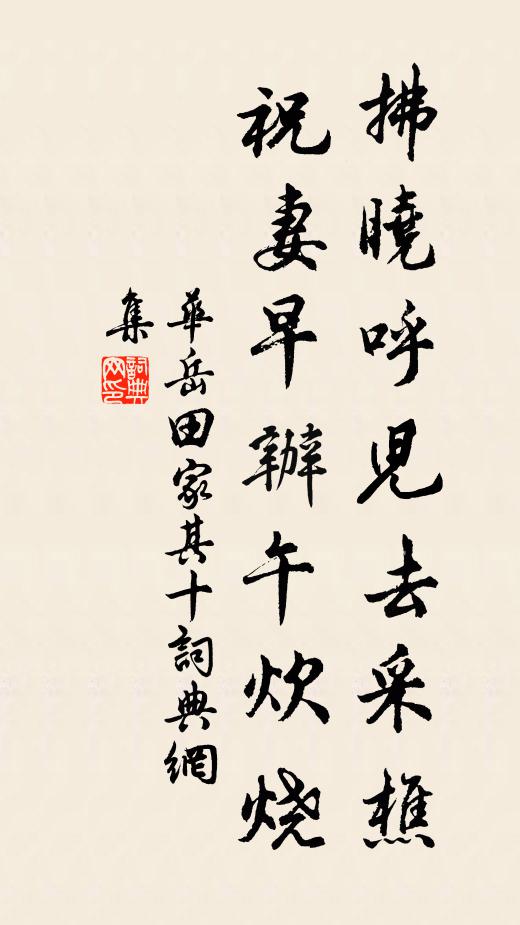 拂曉呼兒去采樵
祝妻早辦午炊烧
華岳田家其十詞典網
集
詞典网印